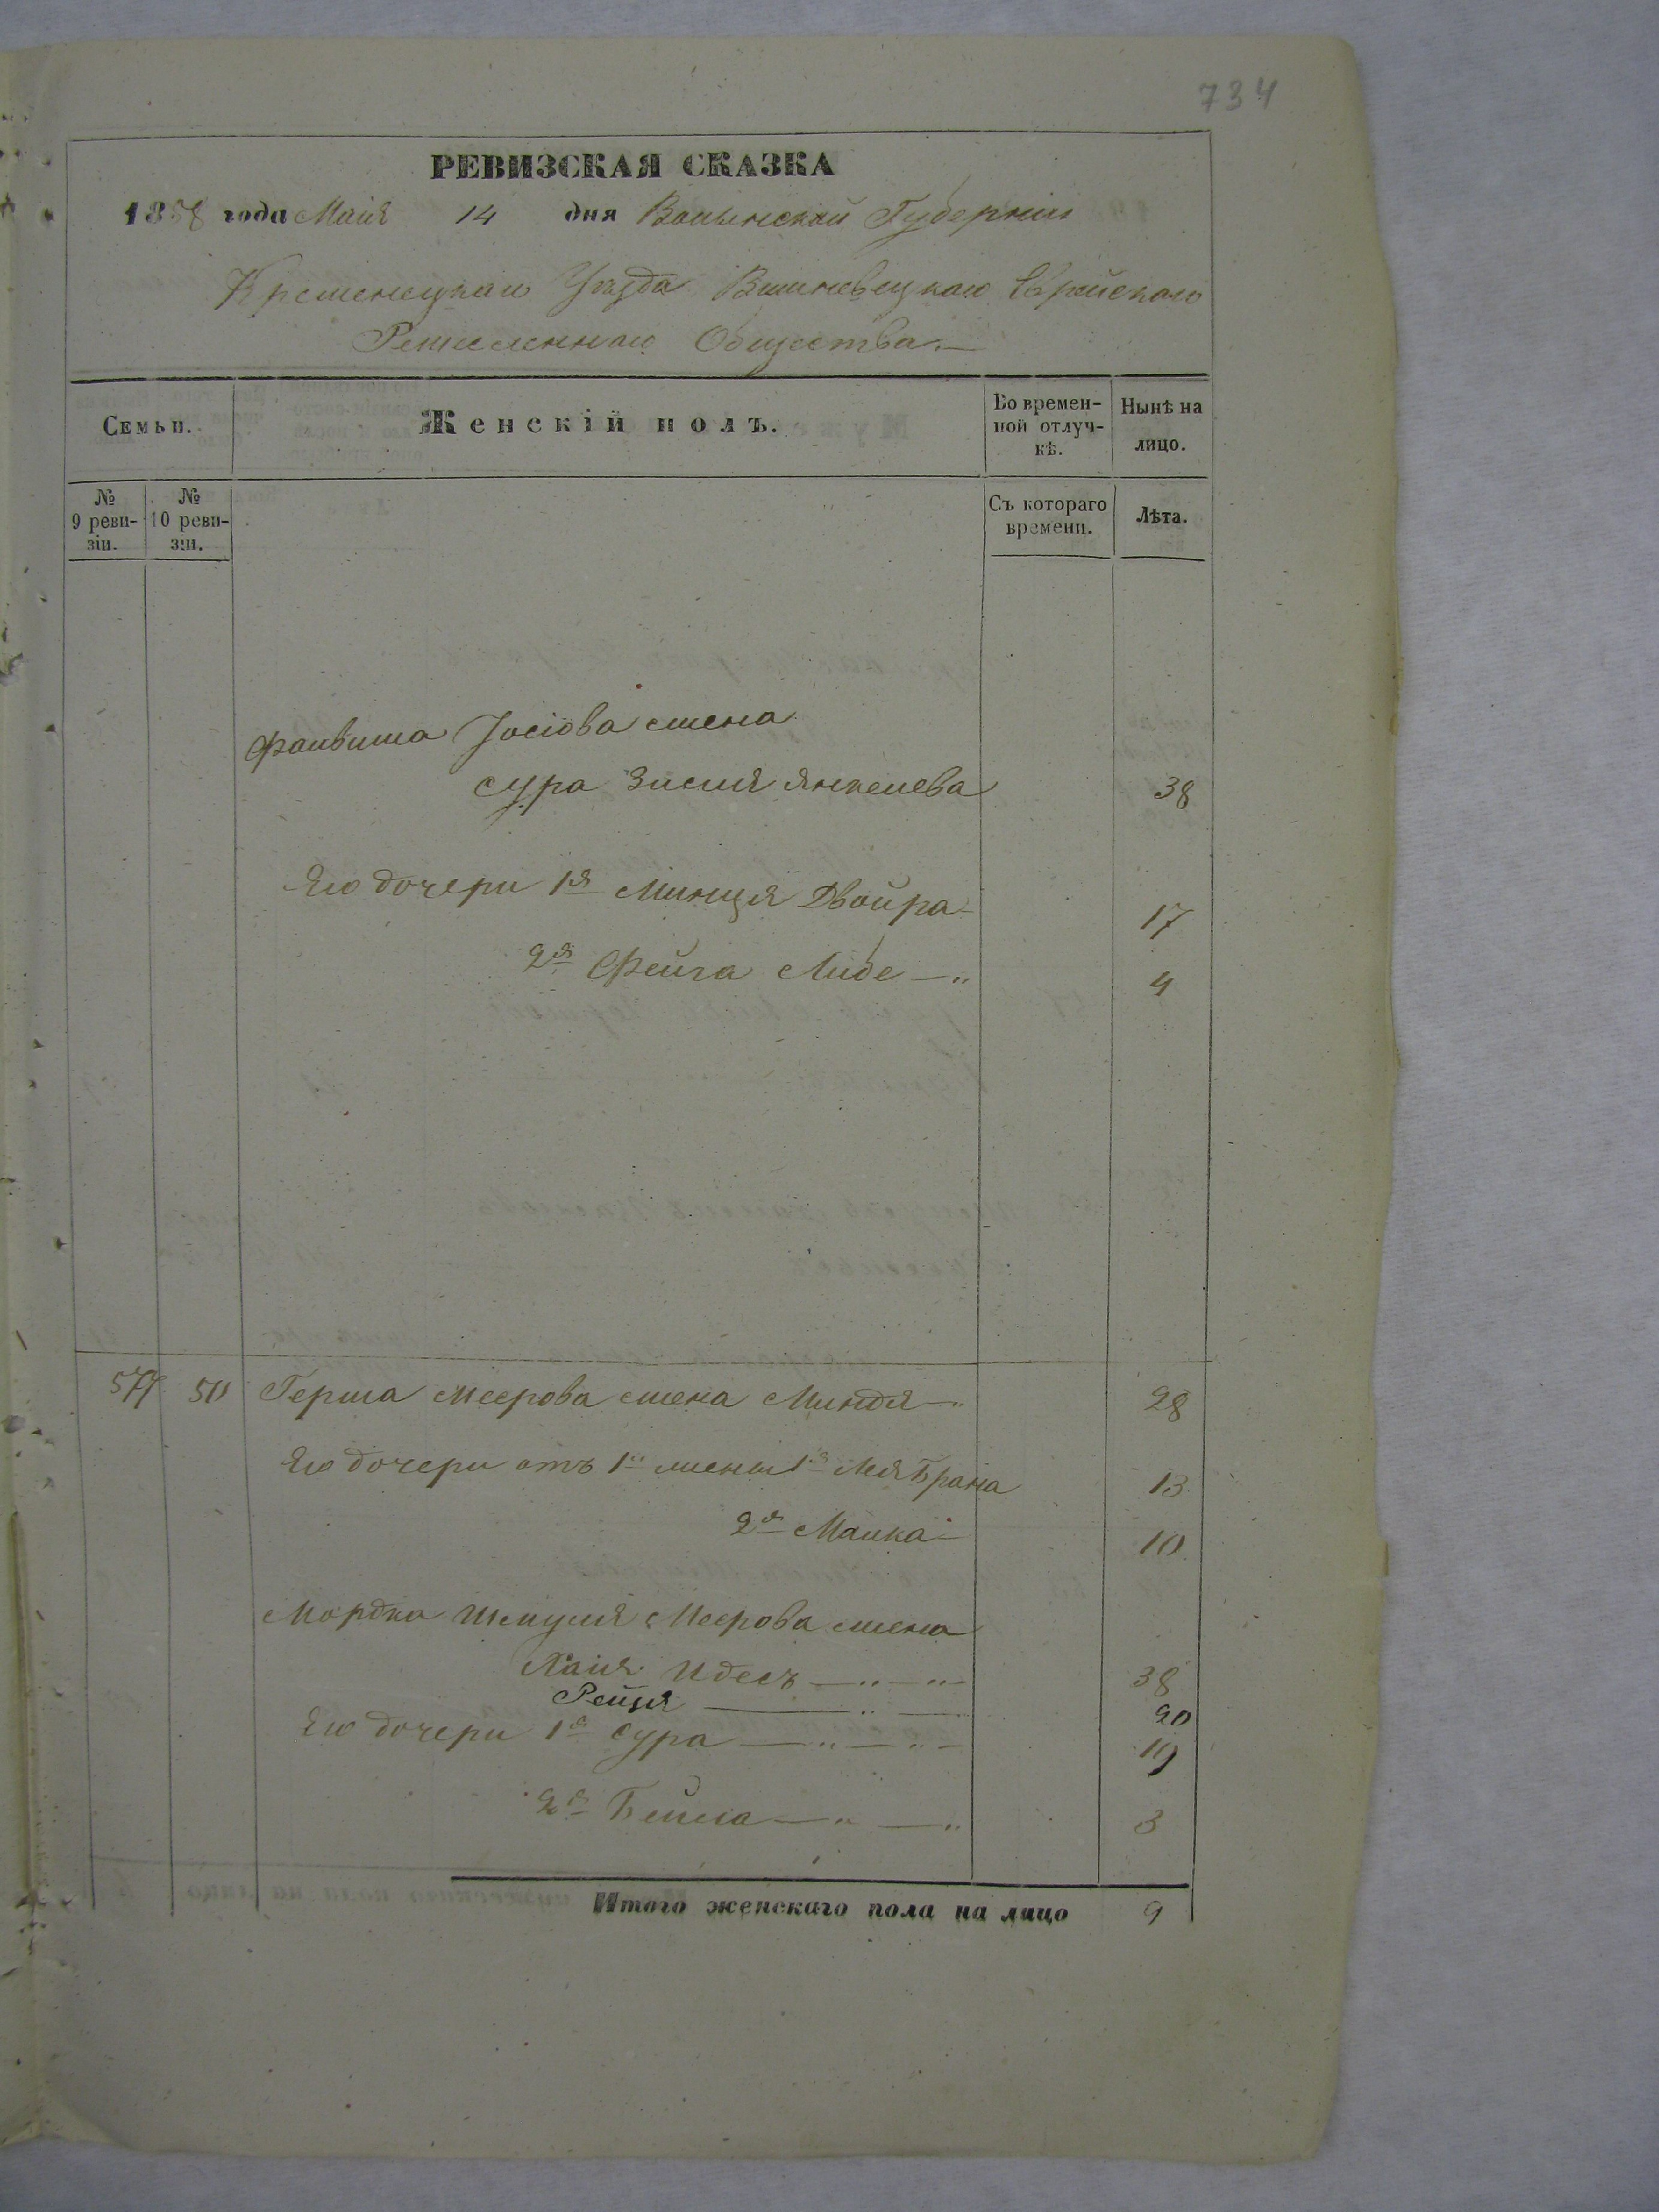 734
РЕВИЗСКАЯ СКАЗКА
1858 года Маія 14 дня Волынской Губерніи
Кременецкаго Уѣзда Вишневецкаго Еврейскаго
Ремесленнаго Общества.—
Семьи. Женскій полъ. Во времен-ной отлуч-кѣ. Нынѣ на лицо.
№ 9 реви-зіи. № 10 реви-зіи. Съ котораго времени. Лѣта.
Фаивиша Іосіова жена
Сура Зисля Янкелева 38
Его дочери 1я Минця Двойра 17
2я Фейга Либе —„ 4
577 511 Герша Меерова жена Миндля —„ 28
Его дочери отъ 1й жены 1я Лея Брана 13
2я Малка 10
Мордка Шмуля Меерова жена
Хаія Идесъ —„—„— 38
Рейзя —„— 20
Его дочери 1я Сура —„—„— 19
2я Бейла —„—„ 3
Итого женскаго пола на лицо 9